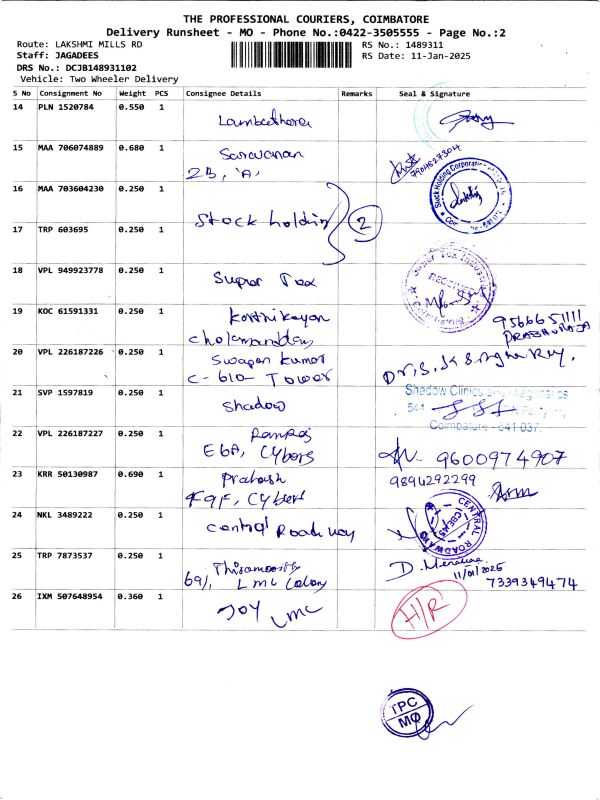 THE PROFESSIONAL COURIERS, COIMBATORE
Delivery Runsheet - MO - Phone No.:0422-3505555 - Page No.:2
Route: LAKSHMI MILLS RD
RS No.: 1489311
Staff: JAGADEES
RS Date: 11-Jan-2025
DRS No.: DCJB148931102
Vehicle: Two Wheeler Delivery
S No Consignment No Weight PCS Consignee Details Remarks Seal & Signature
14 PLN 1520784 0.550 1
15 MAA 706074889 0.680 1 Saravanan
2B, 'A'
16 MAA 703604230 0.250 1
Stock holding 2
Stock Holding Corporation
17 TRP 603695 0.250 1
18 VPL 949923778 0.250 1 Super Tex
Super Tex Industries
RECEIVED
Coimbatore
19 KOC 61591331 0.250 1 Karthikeyan
9566651111
20 VPL 226187226 0.250 1 Swapan kumar
C-610- Tower
21 SVP 1597819 0.250 1 Shadow
Shadow Clinics and Diagnostics
544
Coimbatore - 641 037.
22 VPL 226187227 0.250 1
E6A, Cybers
9600974907
23 KRR 50130987 0.690 1 Prakash
9894292299
24 NKL 3489222 0.250 1 Central Roadway
CENTRAL ROADWAYS
CBE-45
25 TRP 7873537 0.250 1
69/, LMC Colony
11/01/2025
7339349474
26 IXM 507648954 0.360 1 JOY LMC
H/R
TPC
MO